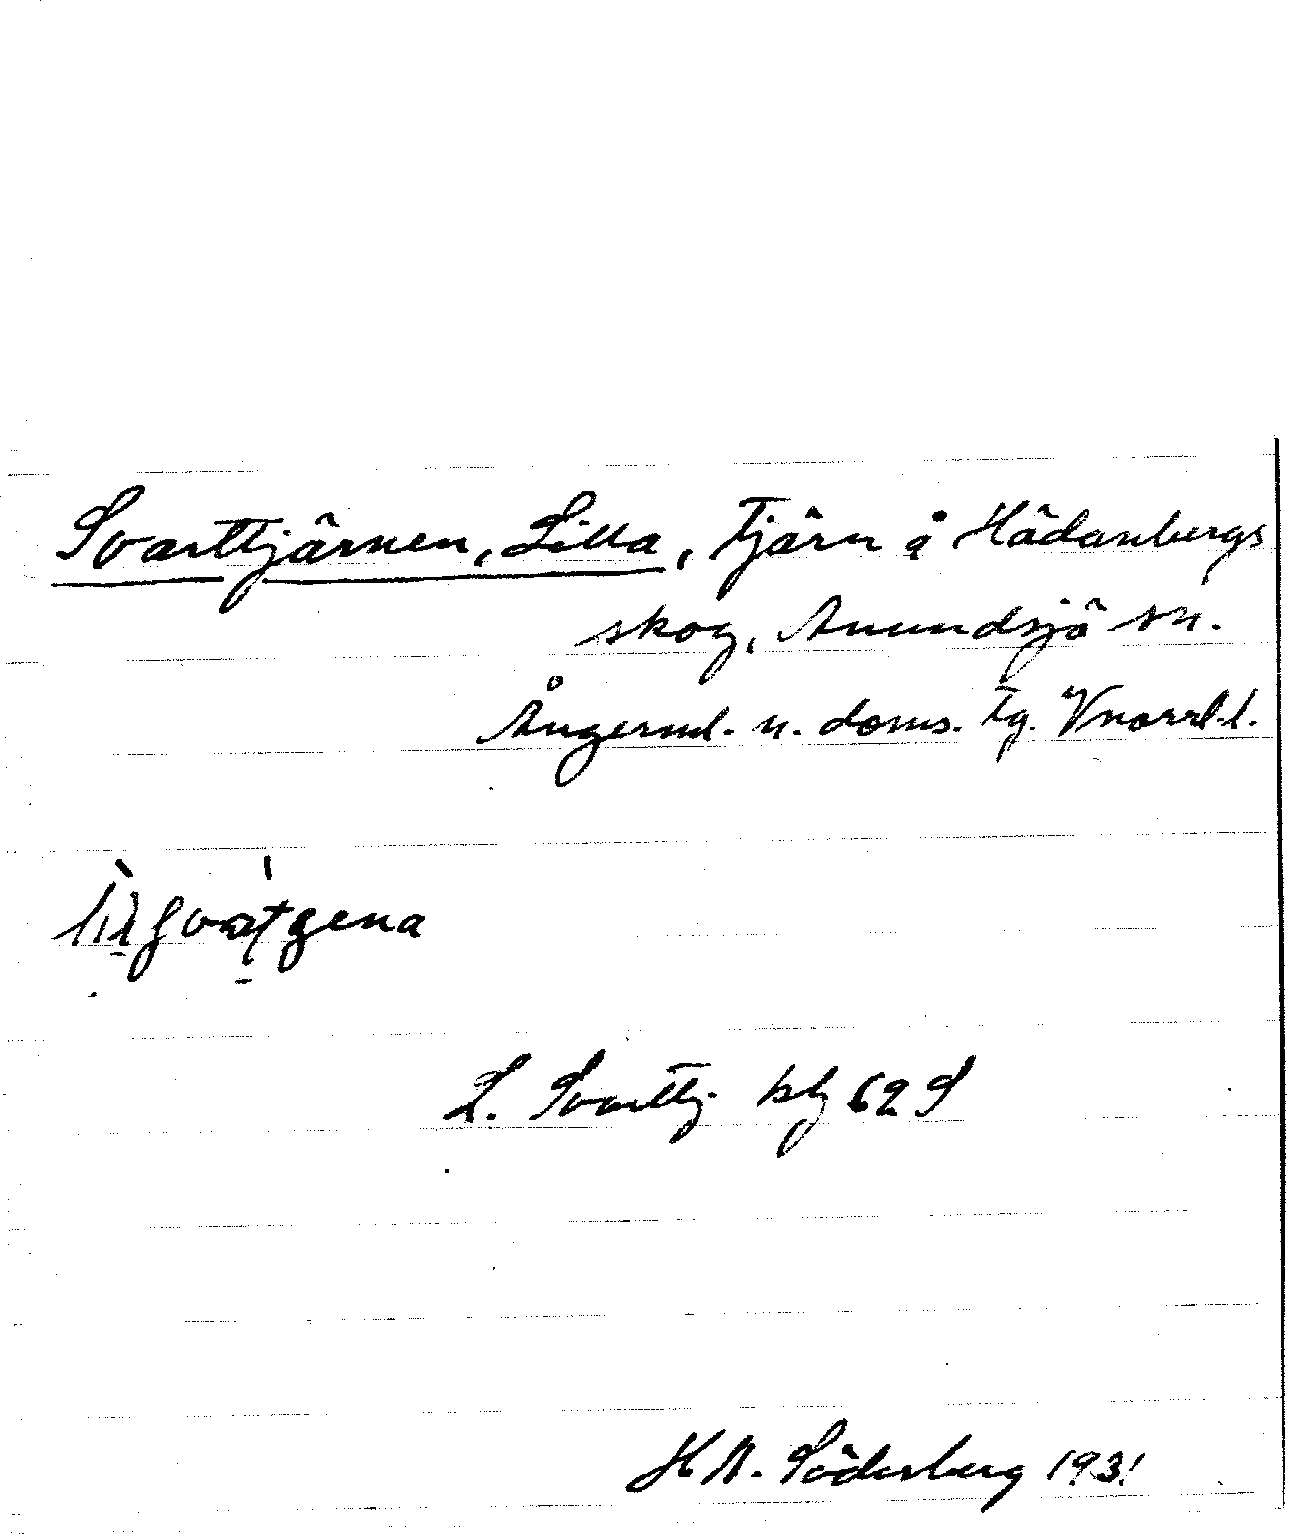 Svarttjärnen, Lilla, Tjärn å Hädanbergs
skog, Anundsjö sn.
Ångerml. n. doms. tg. Vnorrl. l.
L. Svarttj. blg 62 S
H A. Söderberg 1931